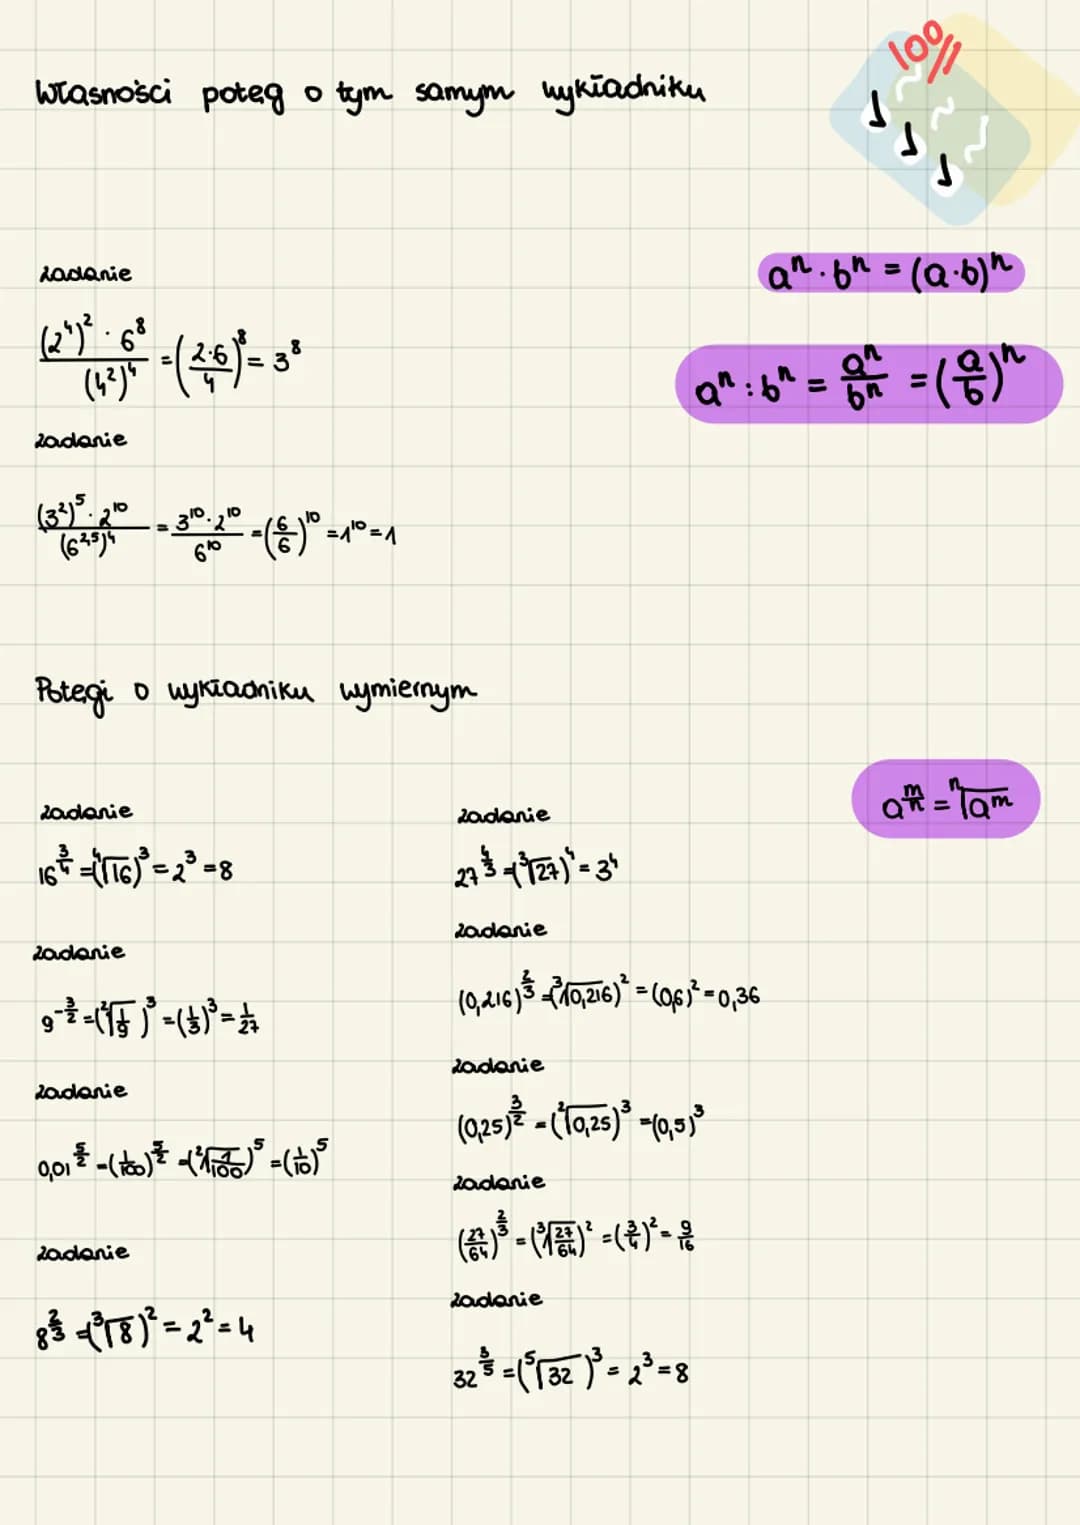 100%
Własności potęg o tym samym wykładniku
zadanie
aⁿ · bⁿ = (a·b)ⁿ
(2⁴)² · 6⁸ / (4²)⁴ = (2·6 / 4)⁸ = 3⁸
aⁿ : bⁿ = aⁿ/bⁿ = (a/b)ⁿ
zadanie
(3²)⁵ · 2¹⁰ / (6^2,5)⁴ = 3¹⁰ · 2¹⁰ / 6¹⁰ = (6/6)¹⁰ = 1¹⁰ = 1
Potęgi o wykładniku wymiernym
a^(m/n) = ⁿ√aᵐ
zadanie
16^(3/4) = (⁴√16)³ = 2³ = 8
zadanie
9^(-3/2) = (²√(1/9))³ = (1/3)³ = 1/27
zadanie
0,01^(5/2) = (1/100)^(5/2) = (²√(1/100))⁵ = (1/10)⁵
zadanie
8^(2/3) = (³√8)² = 2² = 4
zadanie
27^(4/3) = (³√27)⁴ = 3⁴
zadanie
(0,216)^(2/3) = (³√0,216)² = (0,6)² = 0,36
zadanie
(0,25)^(3/2) = (²√0,25)³ = (0,5)³
zadanie
(27/64)^(2/3) = (³√(27/64))² = (3/4)² = 9/16
zadanie
32^(3/5) = (⁵√32)³ = 2³ = 8